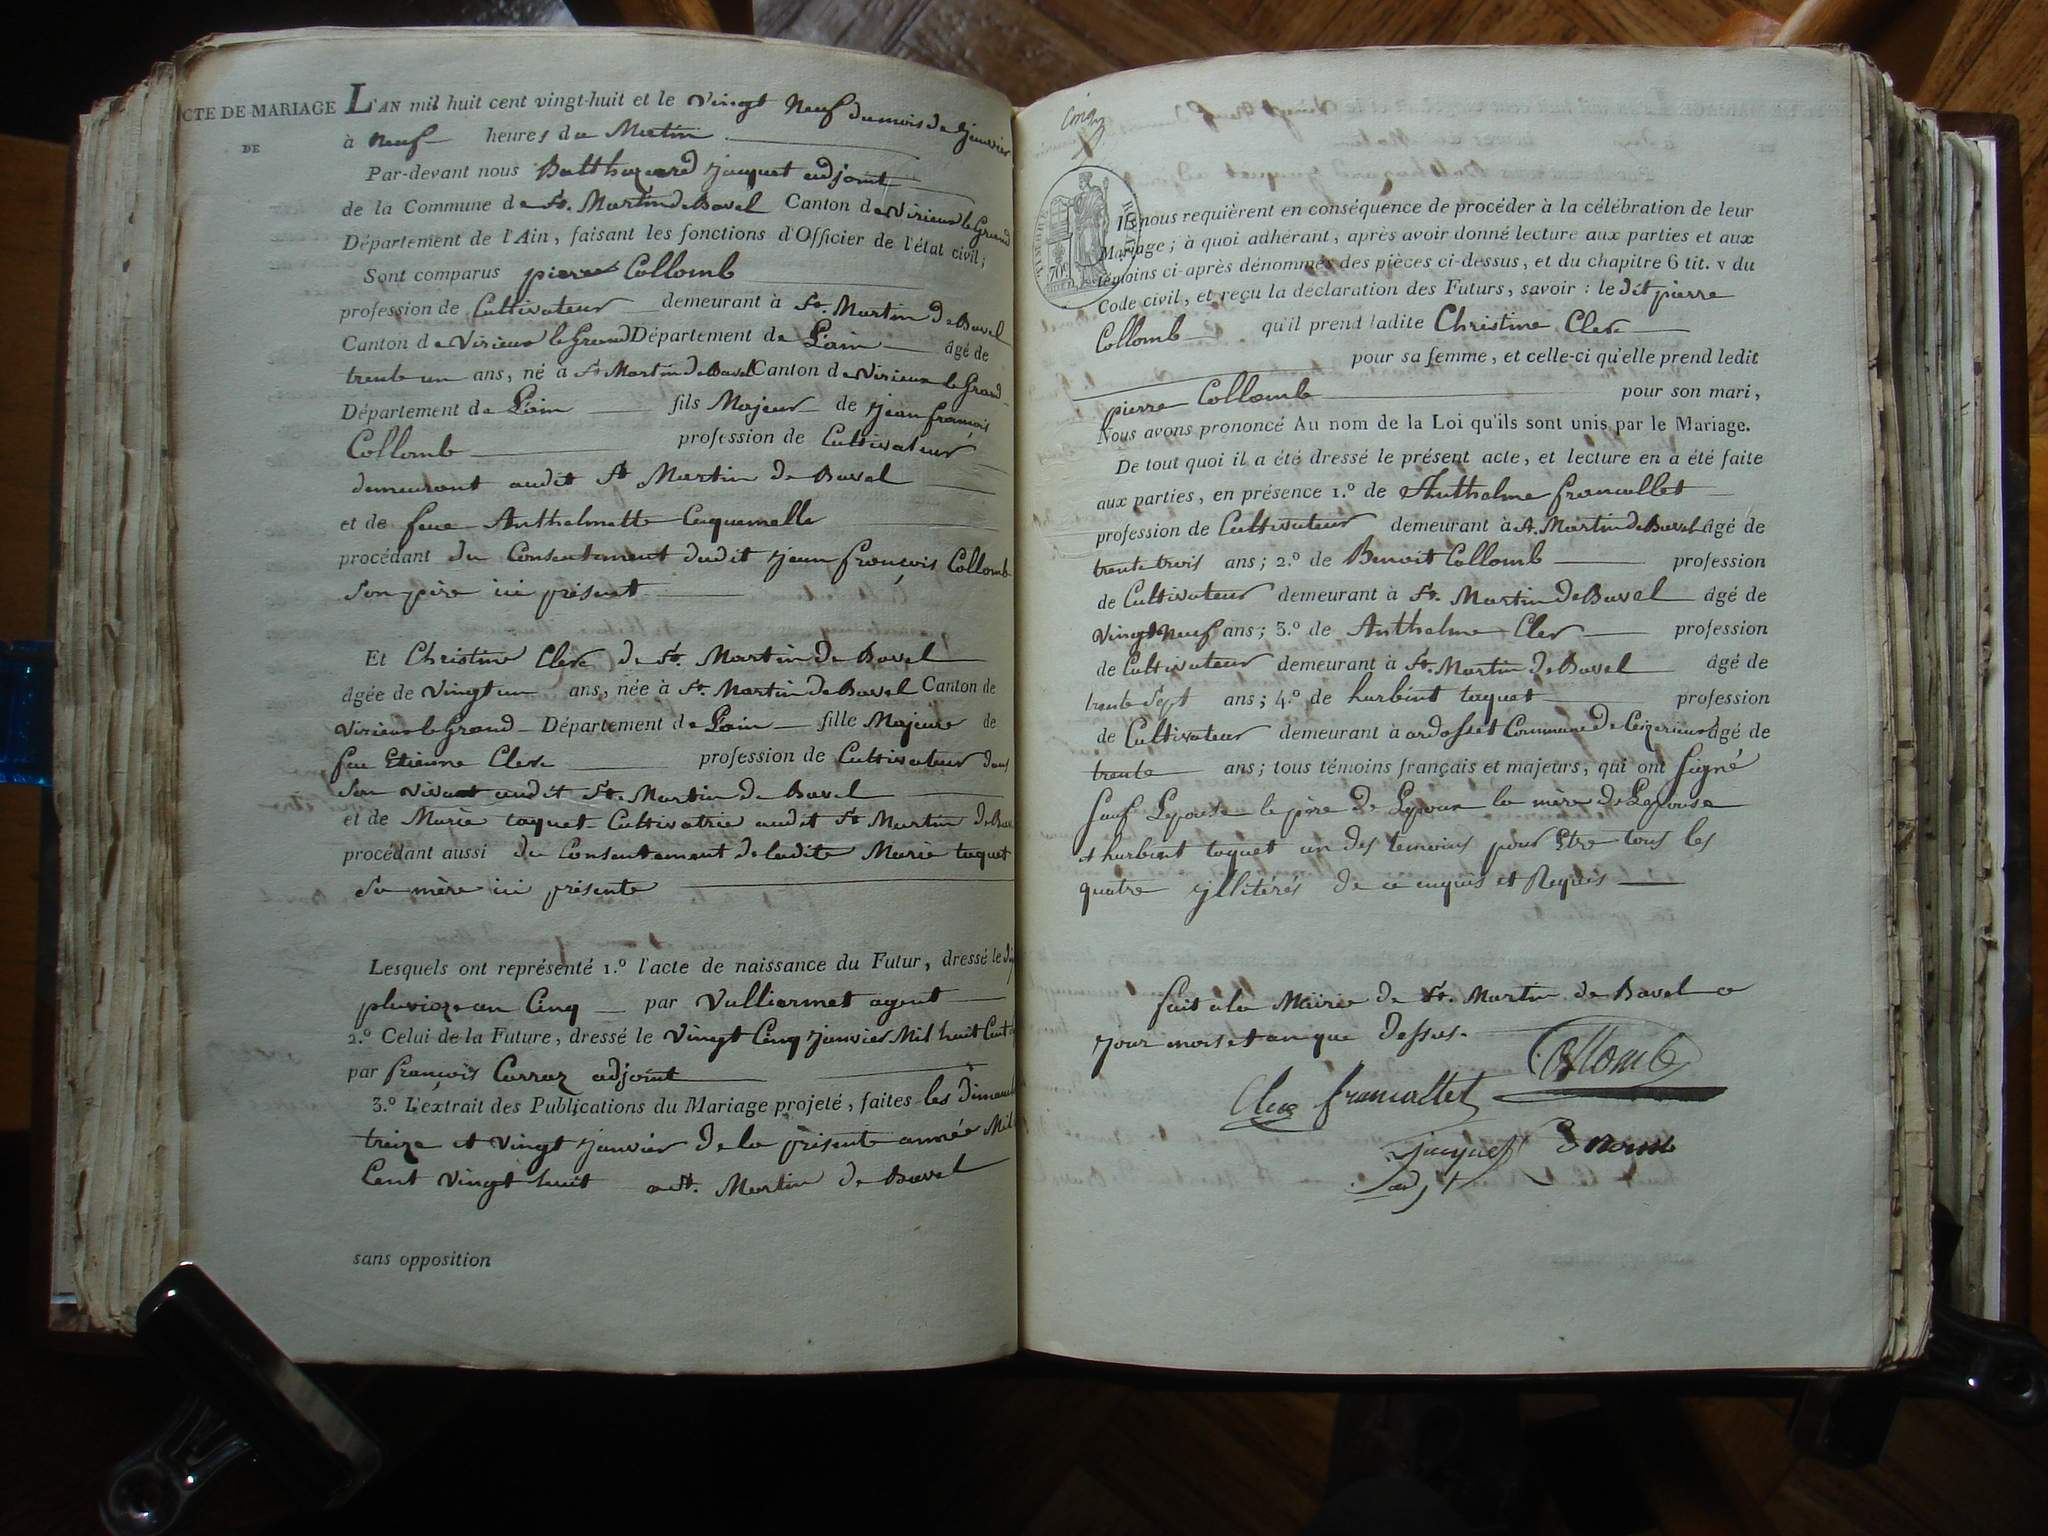 CTE DE MARIAGE
DE
L'AN mil huit cent vingt-huit et le Vingt Neuf du mois de janvier
à Neuf heures du Matin
Par-devant nous Balthazard jacquet adjoint
de la Commune de St. Martin de Bavel Canton de Virieux le Grand
Département de l'Ain, faisant les fonctions d'Officier de l'état civil;
Sont comparus pierre Collomb
profession de Cultivateur demeurant à St. Martin de Bavel
Canton de Virieux le Grand Département de L'ain âgé de
trente un ans, né à St Martin de Bavel Canton de Virieux le Grand
Département de L'ain fils Majeur de jean françois
Collomb profession de Cultivateur
demeurant audit St Martin de Bavel
et de feue Anthelmette Cuquemelle
procédant du Consentement dudit jean françois Collomb
Son père ici présent
Et Christine Clerc de St. Martin de Bavel
âgée de Vingt un ans, née à St. Martin de Bavel Canton de
Virieux le Grand Département de L'ain fille Majeure de
feu Etienne Clerc profession de Cultivateur dans
Son vivant audit St. Martin de Bavel
et de Marie taquet Cultivatrie audit St Martin de Bav
procédant aussi du Consentement de ladite Marie taquet
Sa mère ici présente
Lesquels ont représenté 1.º l'acte de naissance du Futur, dressé le
pluvioze an Cinq par Vulliermet agent
2.º Celui de la Future, dressé le Vingt Cinq janvier Mil huit Cent
par françois Carraz adjoint
3.º L'extrait des Publications du Mariage projeté, faites les dimanch
treize et vingt janvier de la présente année Mil
Cent Vingt huit a St. Martin de Bavel
sans opposition
Cinq
TIMBRE ROYAL
70c
Ils nous requièrent en conséquence de procéder à la célébration de leur
Mariage; à quoi adhérant, après avoir donné lecture aux parties et aux
témoins ci-après dénommés des pièces ci-dessus, et du chapitre 6 tit. v du
Code civil, et reçu la déclaration des Futurs, savoir: le dit pierre
Collomb qu'il prend ladite Christine Clerc
pour sa femme, et celle-ci qu'elle prend ledit
pierre Collomb pour son mari,
Nous avons prononcé Au nom de la Loi qu'ils sont unis par le Mariage.
De tout quoi il a été dressé le présent acte, et lecture en a été faite
aux parties, en présence 1.º de Anthelme francallet
profession de Cultivateur demeurant à St. Martin de Bavel âgé de
trente trois ans; 2.º de Benoit Collomb profession
de Cultivateur demeurant à St. Martin de Bavel âgé de
Vingt Neuf ans; 3.º de Anthelme Cler profession
de Cultivateur demeurant à St. Martin de Bavel âgé de
trente Sept ans; 4.º de hurbint taquet profession
de Cultivateur demeurant à ardosset Commune de Ceizerieux âgé de
trente ans; tous témoins français et majeurs, qui ont Signé
Sauf Lepouse le père de Lepoux la mère de Lepouse
et hurbint taquet un des temoins pour Etre tous les
quatre yllitérés de ce enquis et Requis
fait a la Mairie de St. Martin de Bavel ce
jour mois et an que dessus.
Collomb
Clerc francallet
jacquet
adjt